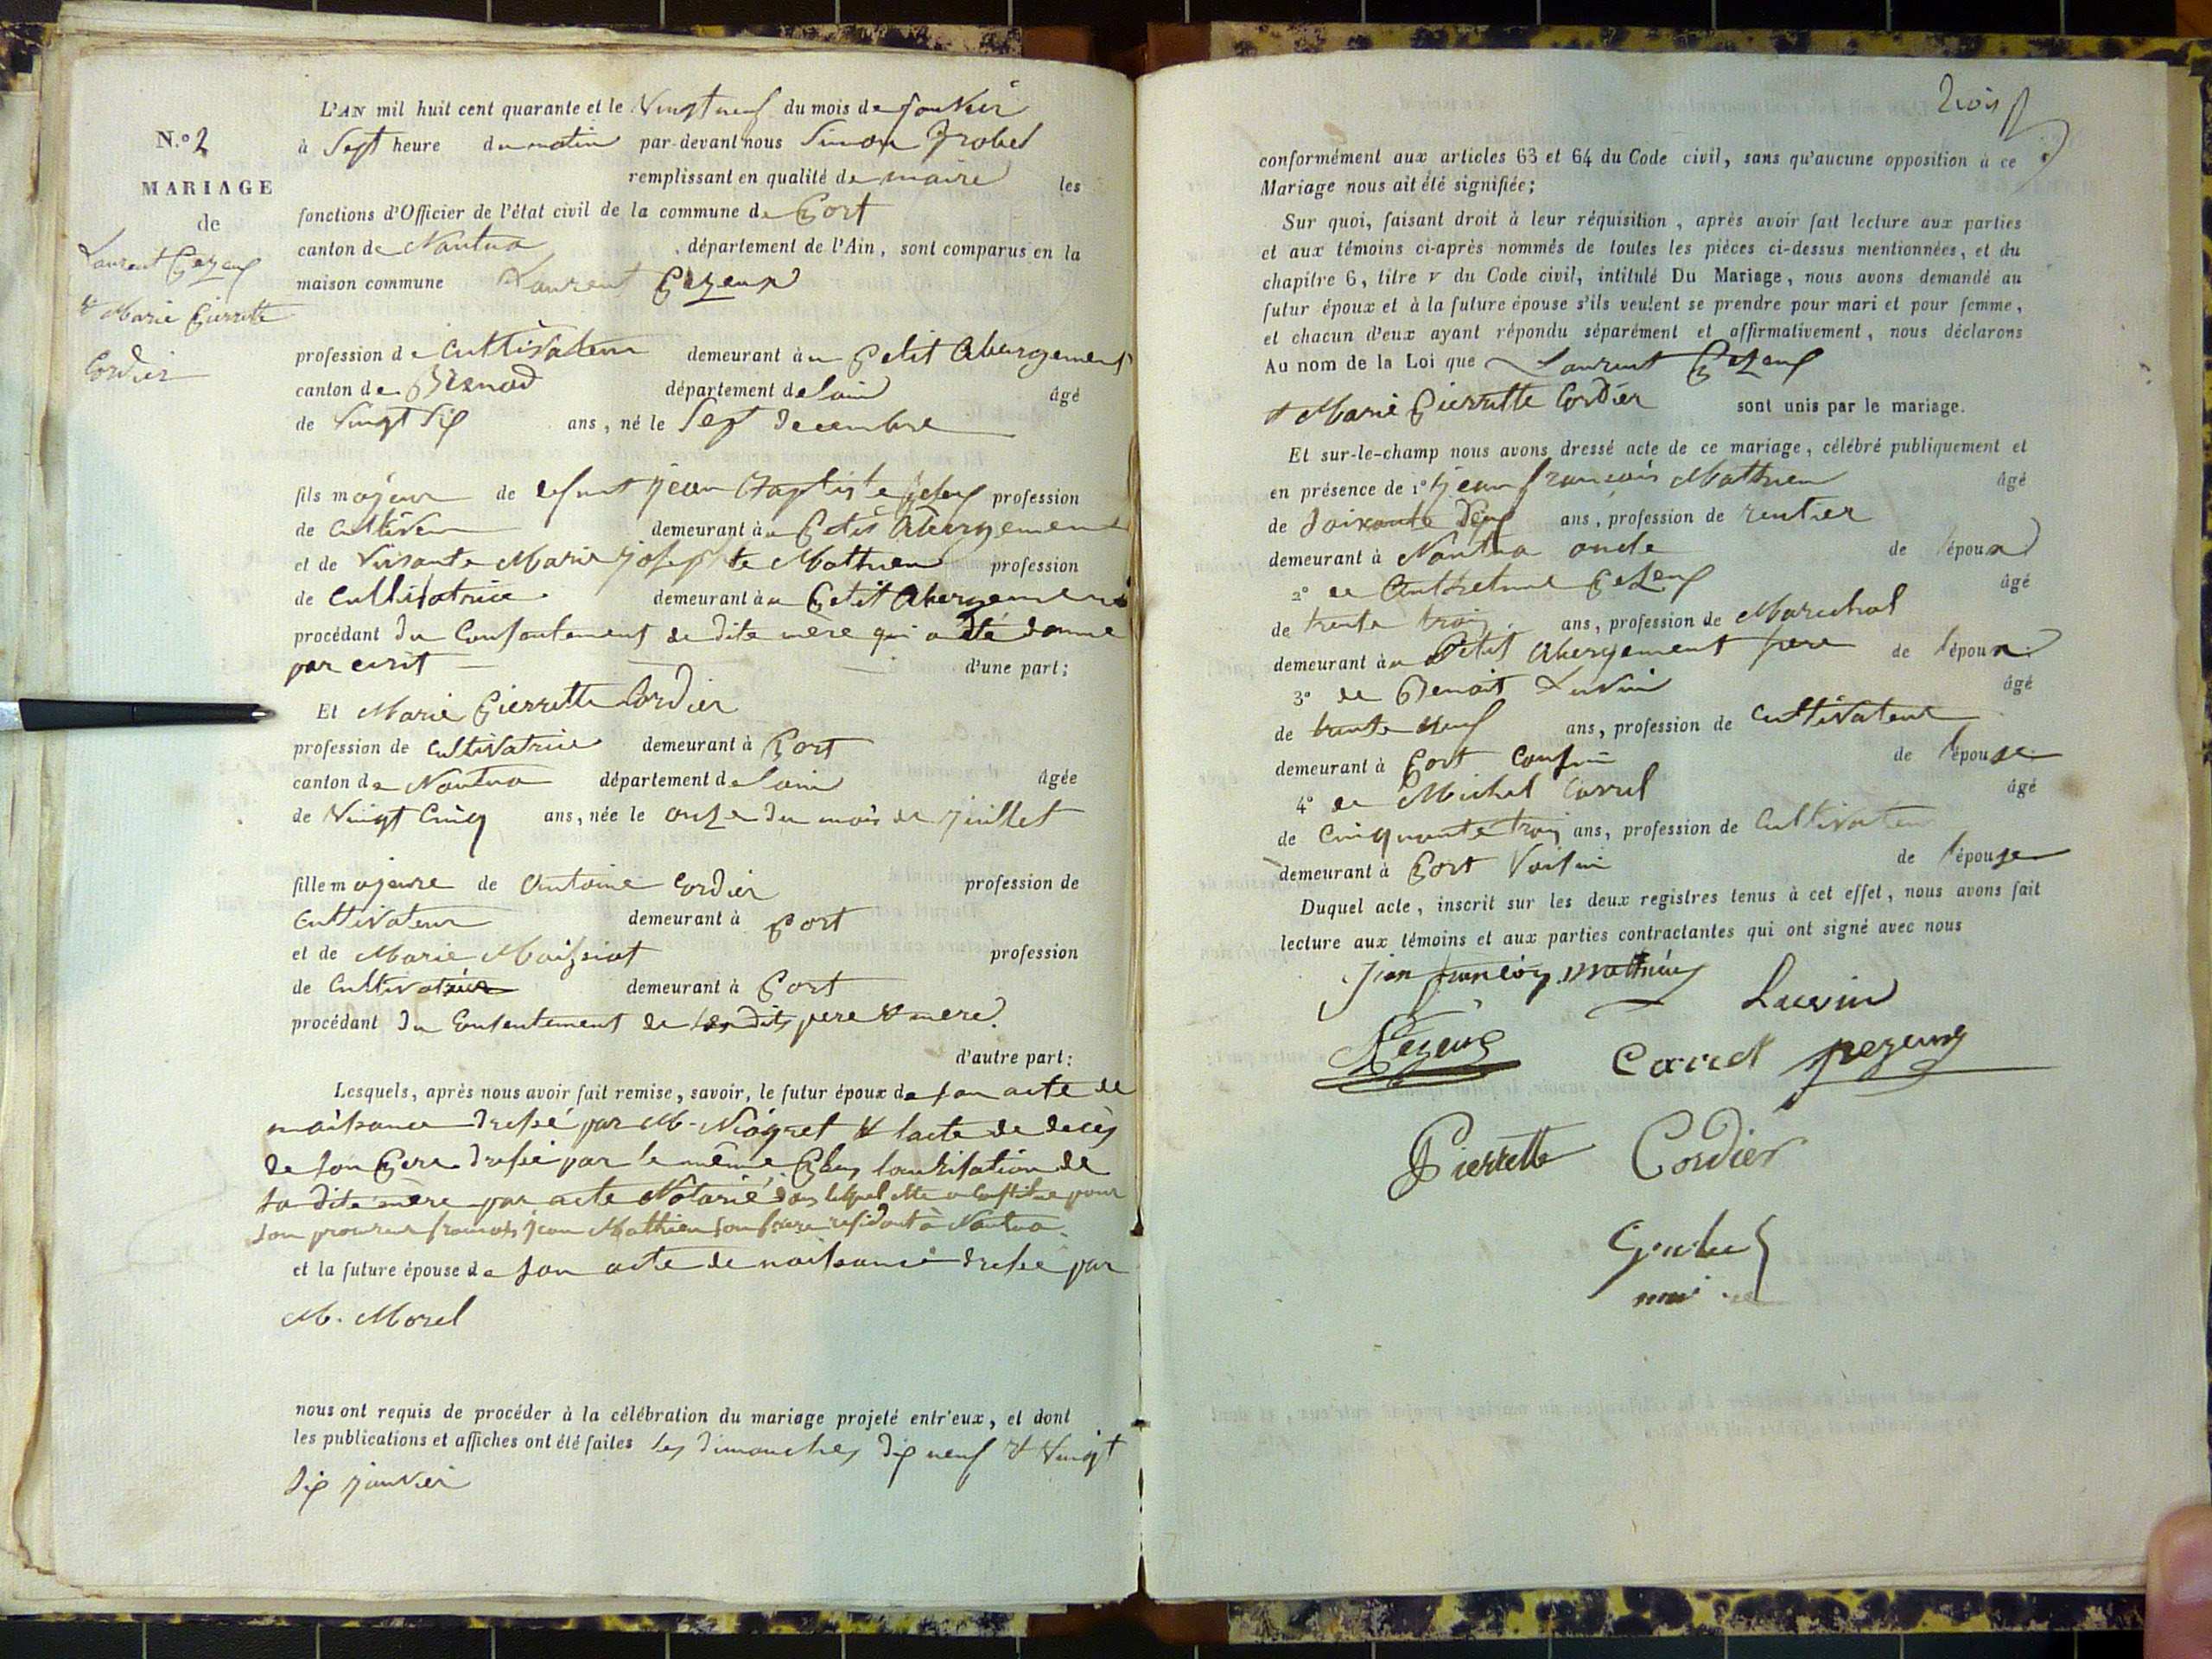 N.º 2
MARIAGE
de
Laurent Pezeux
& Marie Pierrette
Cordier
L'AN mil huit cent quarante et le Vingt neuf du mois de janvier
à Sept heure du matin par-devant nous Simon
remplissant en qualité de maire les
fonctions d'Officier de l'état civil de la commune de Port
canton de Nantua département de l'Ain, sont comparus en la
maison commune Laurent Pezeux
profession de Cultivateur demeurant au Petit Abergement
canton de Brenod département de lain âgé
de Vingt Six ans, né le Sept Decembre
fils majeur de defunt jean Baptiste Pezeux profession
de demeurant au Petit Abergement
et de Vivante Marie josephte Mathieu profession
de Cultivatrice demeurant au Petit Abergement
procédant du Consentement de dite mère qui a été donné
par ecrit d'une part;
Et Marie Pierrette Cordier
profession de Cultivatrice demeurant à Port
canton de Nantua département de lain âgée
de Vingt Cinq ans, née le onze du mois de juillet
fille majeure de Antoine Cordier profession de
Cultivateur demeurant à Port
et de Marie Maissiat profession
de Cultivatrice demeurant à Port
procédant du Consentement de ses dits pere & mere.
d'autre part:
Lesquels, après nous avoir fait remise, savoir, le futur époux de son acte de
naissance dressé par M. Niogret & lacte de decès
de son Pere dressé par le même Plus lautorisation de
sa dite mère par acte Notarié dans lequel elle a constitué pour
son procureur francois jean Mathieu son frere residant à Nantua.
et la future épouse de son acte de naissance dressé par
M. Morel
nous ont requis de procéder à la célébration du mariage projeté entr'eux, et dont
les publications et affiches ont été faites les dimanches dix neuf & Vingt
Six janvier
trois
conformément aux articles 63 et 64 du Code civil, sans qu'aucune opposition à ce
Mariage nous ait été signifiée;
Sur quoi, faisant droit à leur réquisition, après avoir fait lecture aux parties
et aux témoins ci-après nommés de toutes les pièces ci-dessus mentionnées, et du
chapitre 6, titre v du Code civil, intitulé Du Mariage, nous avons demandé au
futur époux et à la future épouse s'ils veulent se prendre pour mari et pour femme,
et chacun d'eux ayant répondu séparément et affirmativement, nous déclarons
Au nom de la Loi que Laurent Pezeux
& Marie Pierrette Cordier sont unis par le mariage.
Et sur-le-champ nous avons dressé acte de ce mariage, célébré publiquement et
en présence de 1º jean françois Mathieu âgé
de Soixante Deux ans, profession de rentier
demeurant à Nantua oncle de l'époux
2º de Anthelme Pezeux âgé
de trente trois ans, profession de Marechal
demeurant au Petit Abergement frere de l'époux
3º de Benoit Luvin âgé
de trente neuf ans, profession de Cultivateur
demeurant à Port Cousin de l'épouse
4º de Michel Carrel âgé
de Cinquante trois ans, profession de Cultivateur
demeurant à Port Voisin de l'épouse
Duquel acte, inscrit sur les deux registres tenus à cet effet, nous avons fait
lecture aux témoins et aux parties contractantes qui ont signé avec nous
jean françois mathieu
Luvin
Pezeux Carrel pezeux
Pierrette Cordier